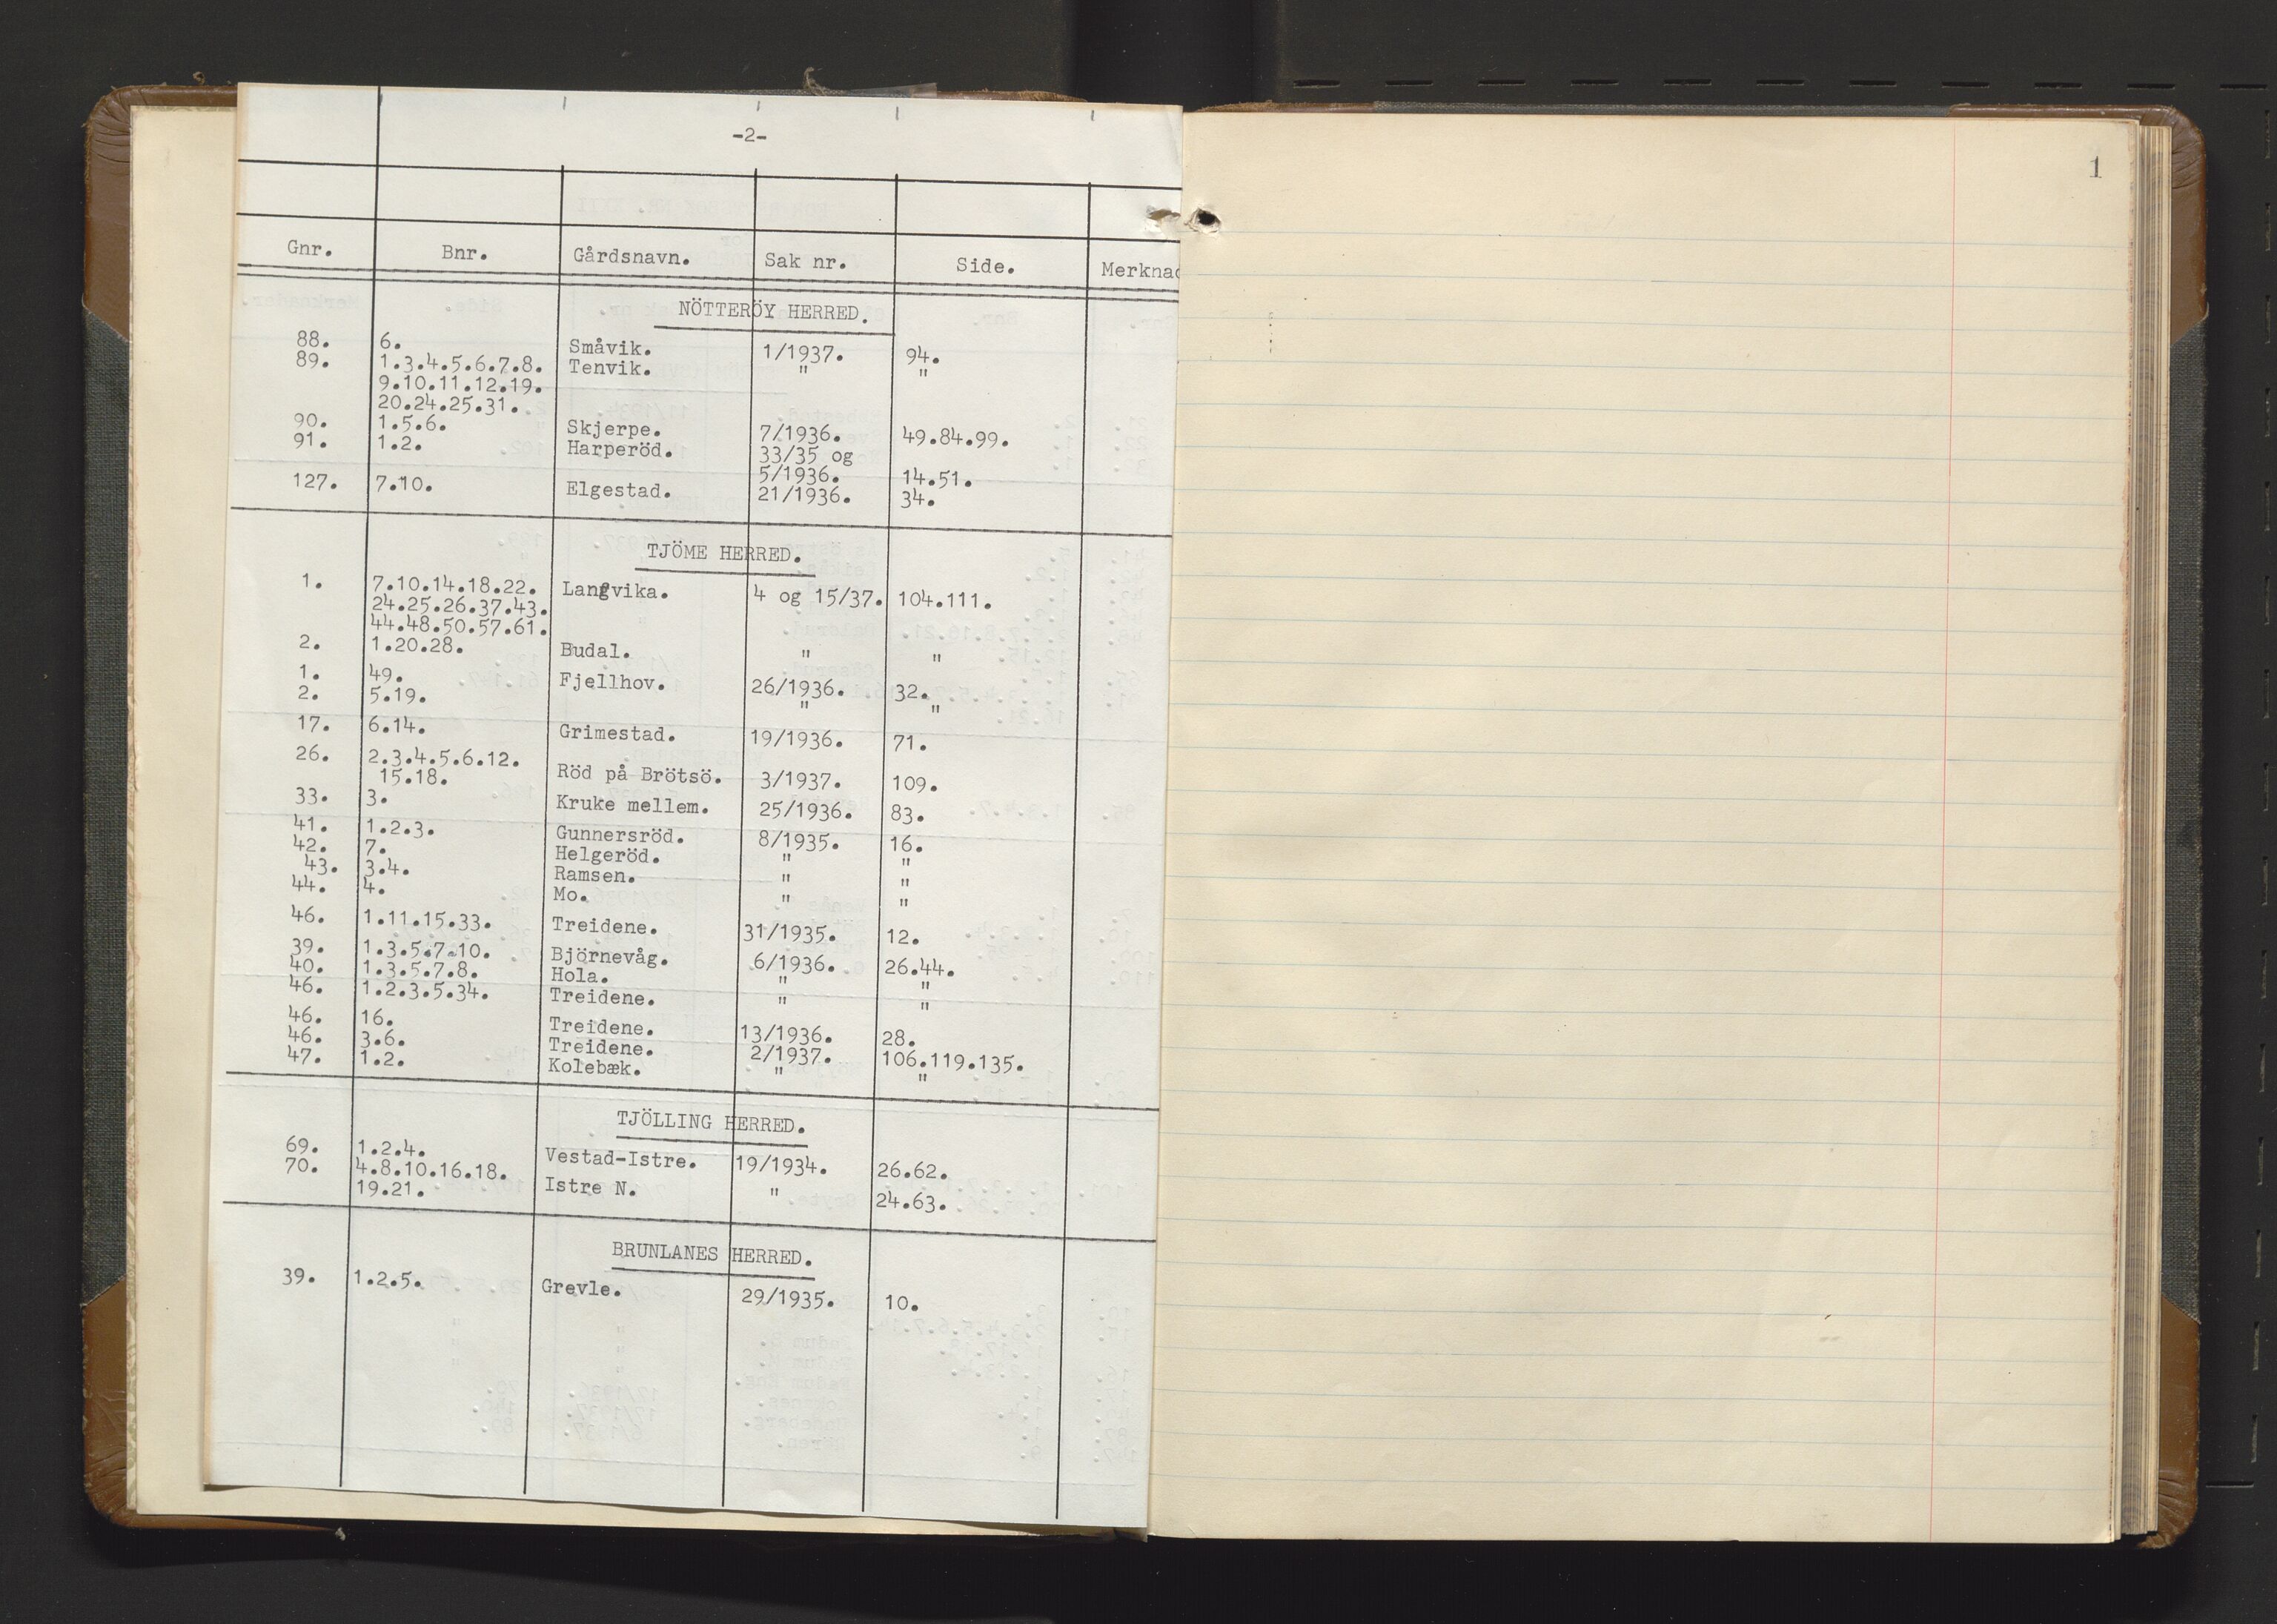 -2-
Gnr. Bnr. Gårdsnavn. Sak nr. Side. Merknad
NÖTTERÖY HERRED.
88. 6. Småvik. 1/1937. 94.
89. 1.3.4.5.6.7.8. Tenvik. " "
9.10.11.12.19.
20.24.25.31.
90. 1.5.6. Skjerpe. 7/1936. 49.84.99.
91. 1.2. Harperöd. 33/35 og
5/1936. 14.51.
127. 7.10. Elgestad. 21/1936. 34.
TJÖME HERRED.
1. 7.10.14.18.22. Langvika. 4 og 15/37. 104.111.
24.25.26.37.43.
44.48.50.57.61.
2. 1.20.28. Budal. " "
1. 49. Fjellhov. 26/1936. 32.
2. 5.19. " "
17. 6.14. Grimestad. 19/1936. 71.
26. 2.3.4.5.6.12.
15.18. Röd på Brötsö. 3/1937. 109.
33. 3. Kruke mellem. 25/1936. 83.
41. 1.2.3. Gunnersröd. 8/1935. 16.
42. 7. Helgeröd. " "
43. 3.4. Ramsen. " "
44. 4. Mo. " "
46. 1.11.15.33. Treidene. 31/1935. 12.
39. 1.3.5.7.10. Björnevåg. 6/1936. 26.44.
40. 1.3.5.7.8. Hola. " "
46. 1.2.3.5.34. Treidene. " "
46. 16. Treidene. 13/1936. 28.
46. 3.6. Treidene. 2/1937. 106.119.135.
47. 1.2. Kolebæk. " "
TJÖLLING HERRED.
69. 1.2.4. Vestad-Istre. 19/1934. 26.62.
70. 4.8.10.16.18.
19.21. Istre N. " 24.63.
BRUNLANES HERRED.
39. 1.2.5. Grevle. 29/1935. 10.
1